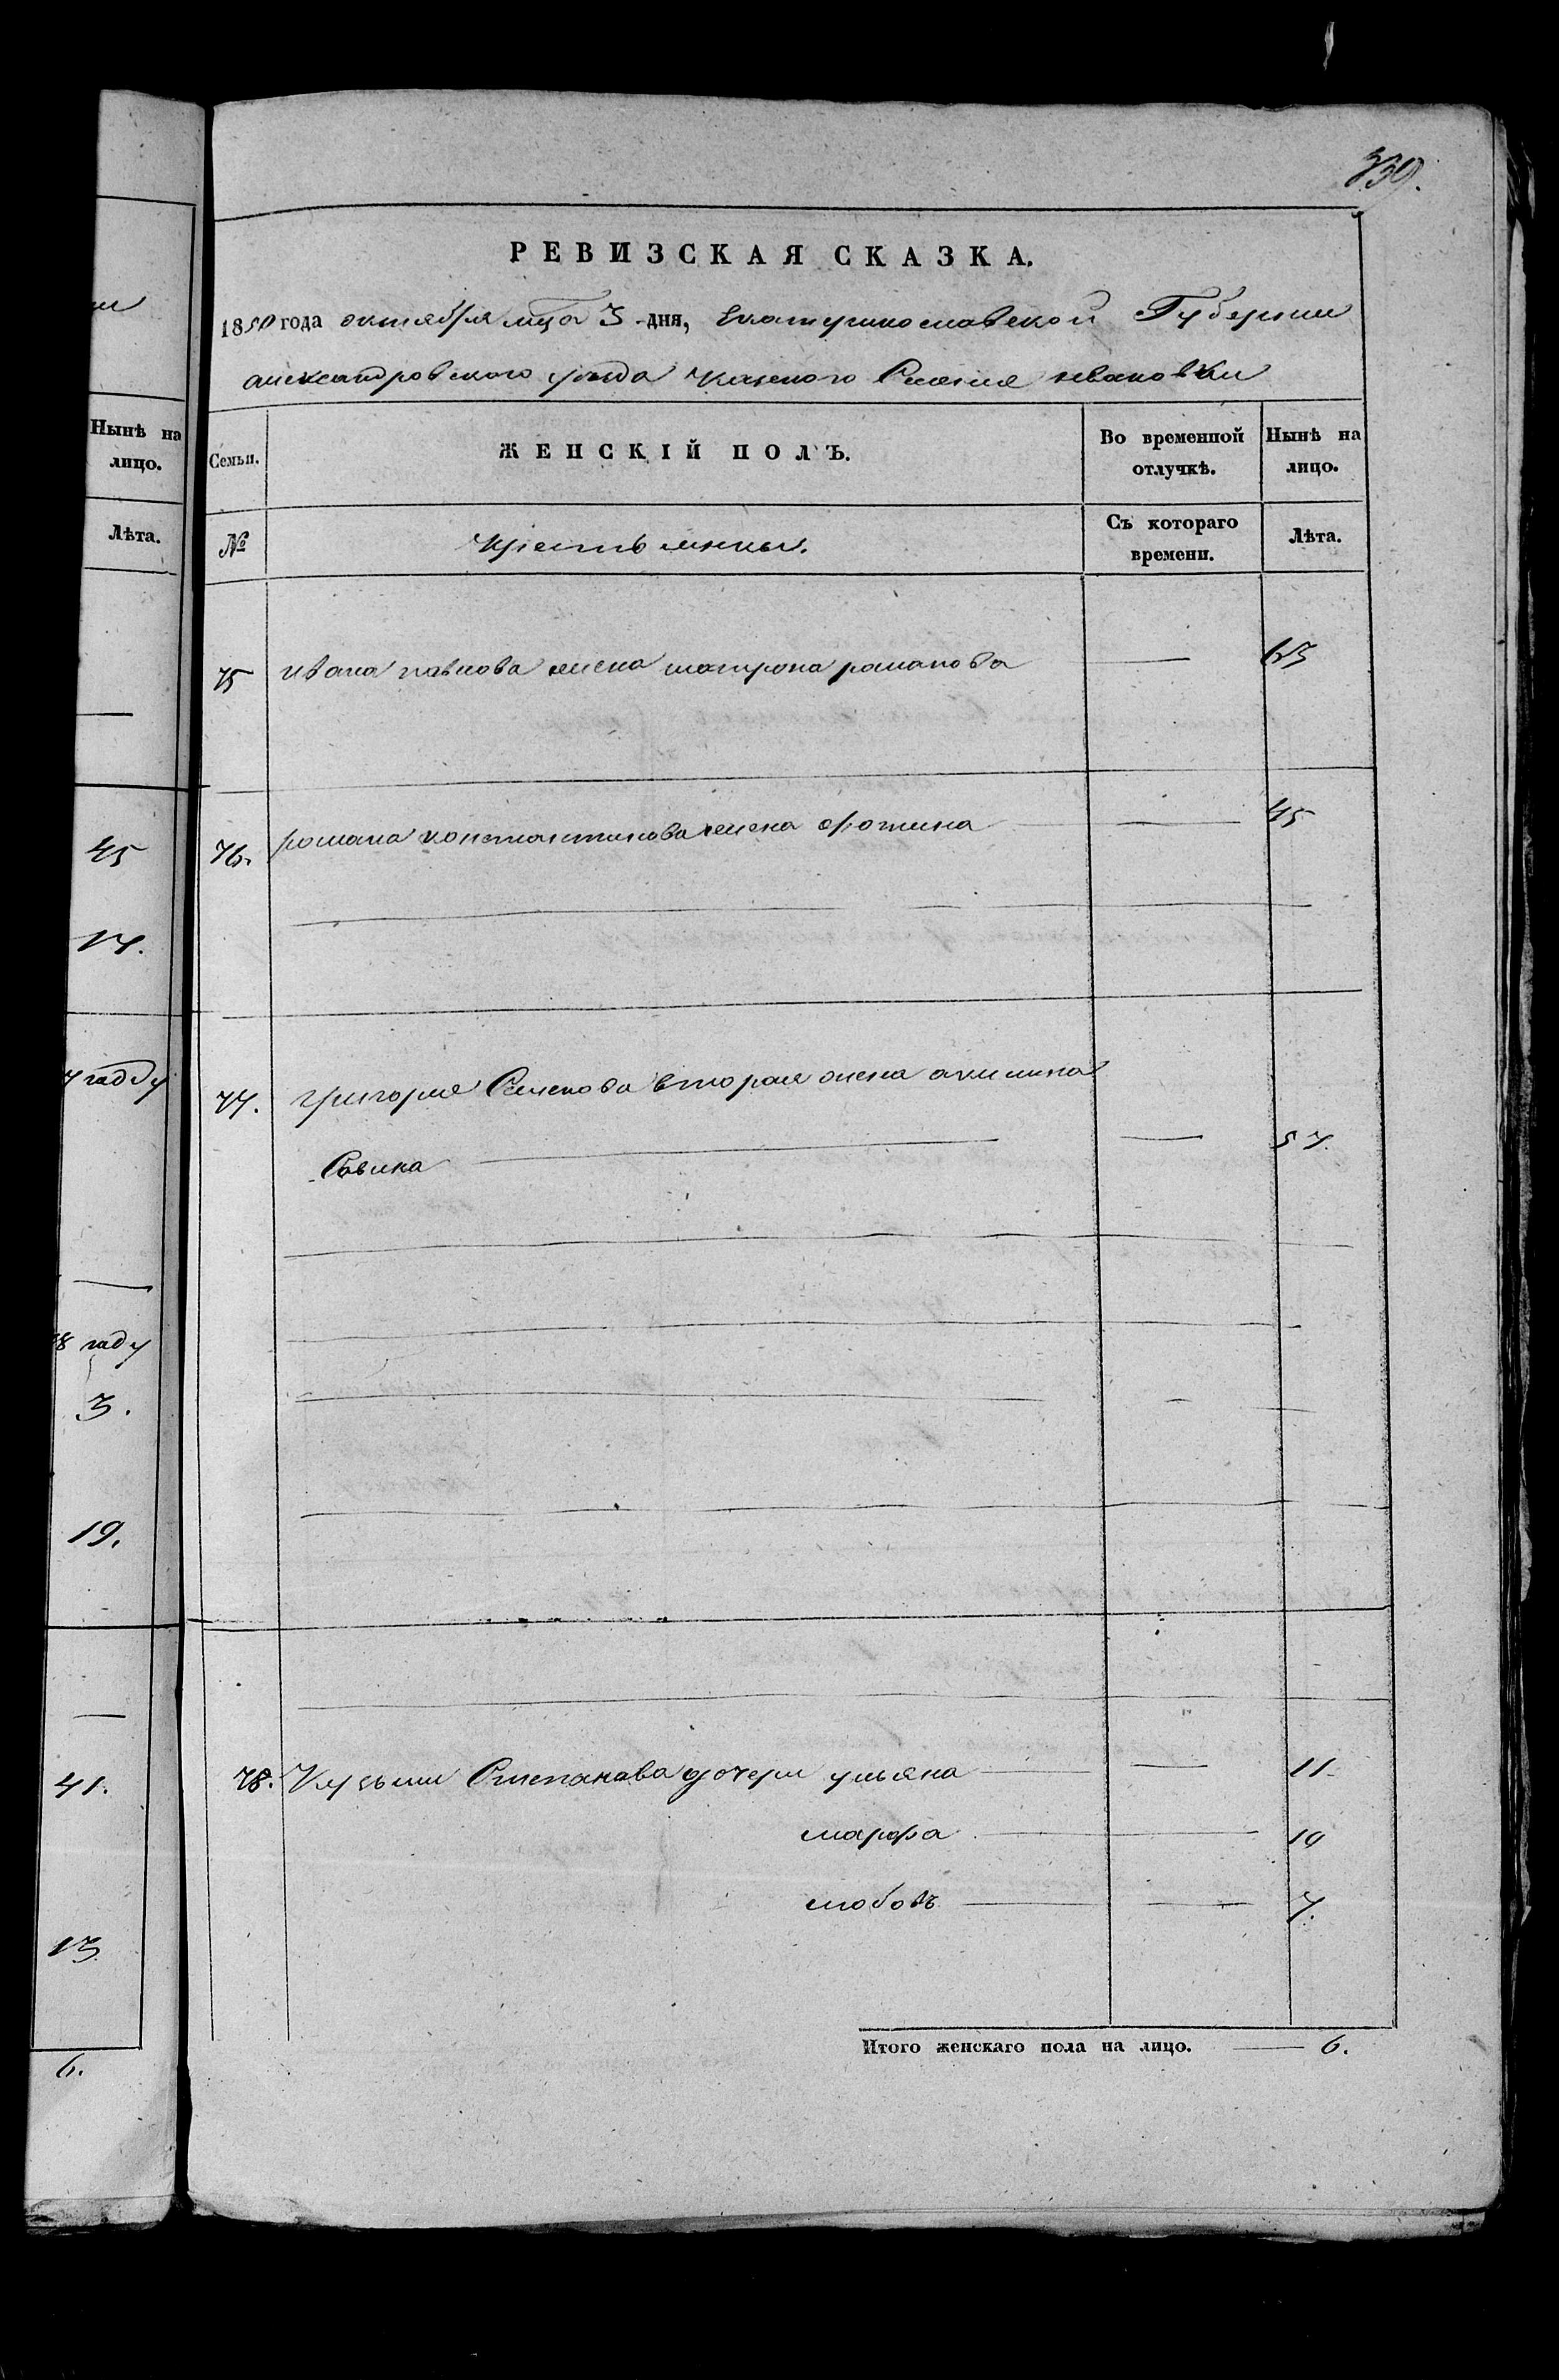 339.
РЕВИЗСКАЯ СКАЗКА.
1850 года октября мца 3 дня, Екатеринославской Губернии
александровского уезда казеного Селения ивановки
Семьи.
ЖЕНСКІЙ ПОЛЪ.
Во временной отлучкѣ.
Нынѣ на лицо.
№
Крестьянки.
Съ котораго времени.
Лѣта.
75 ивана павлова жена матрона романова — 63
76. романа константинова жена фотина — 45
77. григория Семенова вторая жена акилина
Савина — 57.
78. Кузьми Степанова дочери ульяна — 11
марфа — 10
любовь — 7.
Итого женскаго пола на лицо. — 6.
Нынѣ на лицо.
Лѣта.
45
17.
году
8 году
3.
19.
41.
13
6.